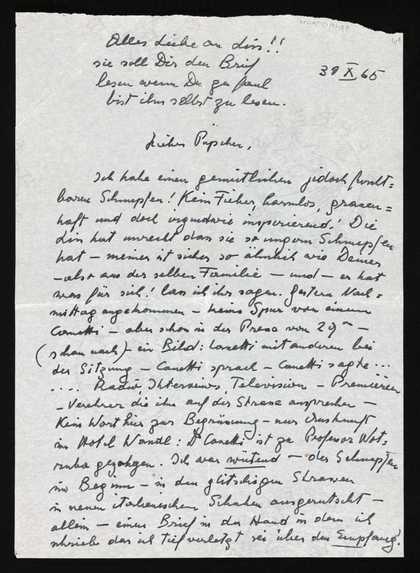 Alles Liebe an Liss!!
sie soll Dir den Brief
lesen wenn Du zu faul
bist ihn selbst zu lesen.
31 X 65
Liebes Pupschen,
Ich habe einen gemütlichen jedoch furcht=
baren Schnupfen! Kein Fieber, harmlos, grauen=
haft und doch irgendwie inspirierend! Die
Liss hat unrecht dass sie so ungern Schnupfen
hat – meiner ist sicher so ähnlich wie Deiner
– also aus der selben Familie – und – er hat
was für sich! lass ich ihr sagen. Gestern Nach=
mittag angekommen – keine Spur von einem
Canetti – aber schon in der Presse vom 29
(schau nach) ein Bild: Canetti mit anderen bei
der Sitzung – Canetti sprach – Canetti sagte ...
.... Radio Interviews Television – Premièren
– Verehrer die ihn auf der Strasse ansprechen –
Kein Wort hier zur Begrüssung – nur Auskunft
im Hotel Wandl: Dr Canetti ist zu Professor Wot=
ruba gezogen. Ich war wütend – der Schnupfen
im Beginn – in den glitschigen Strassen
in neuen italienischen Schuhen ausgerutscht –
allein – einen Brief in der Hand in dem ich
schriebe das ich tief verletzt sei über den Empfang!